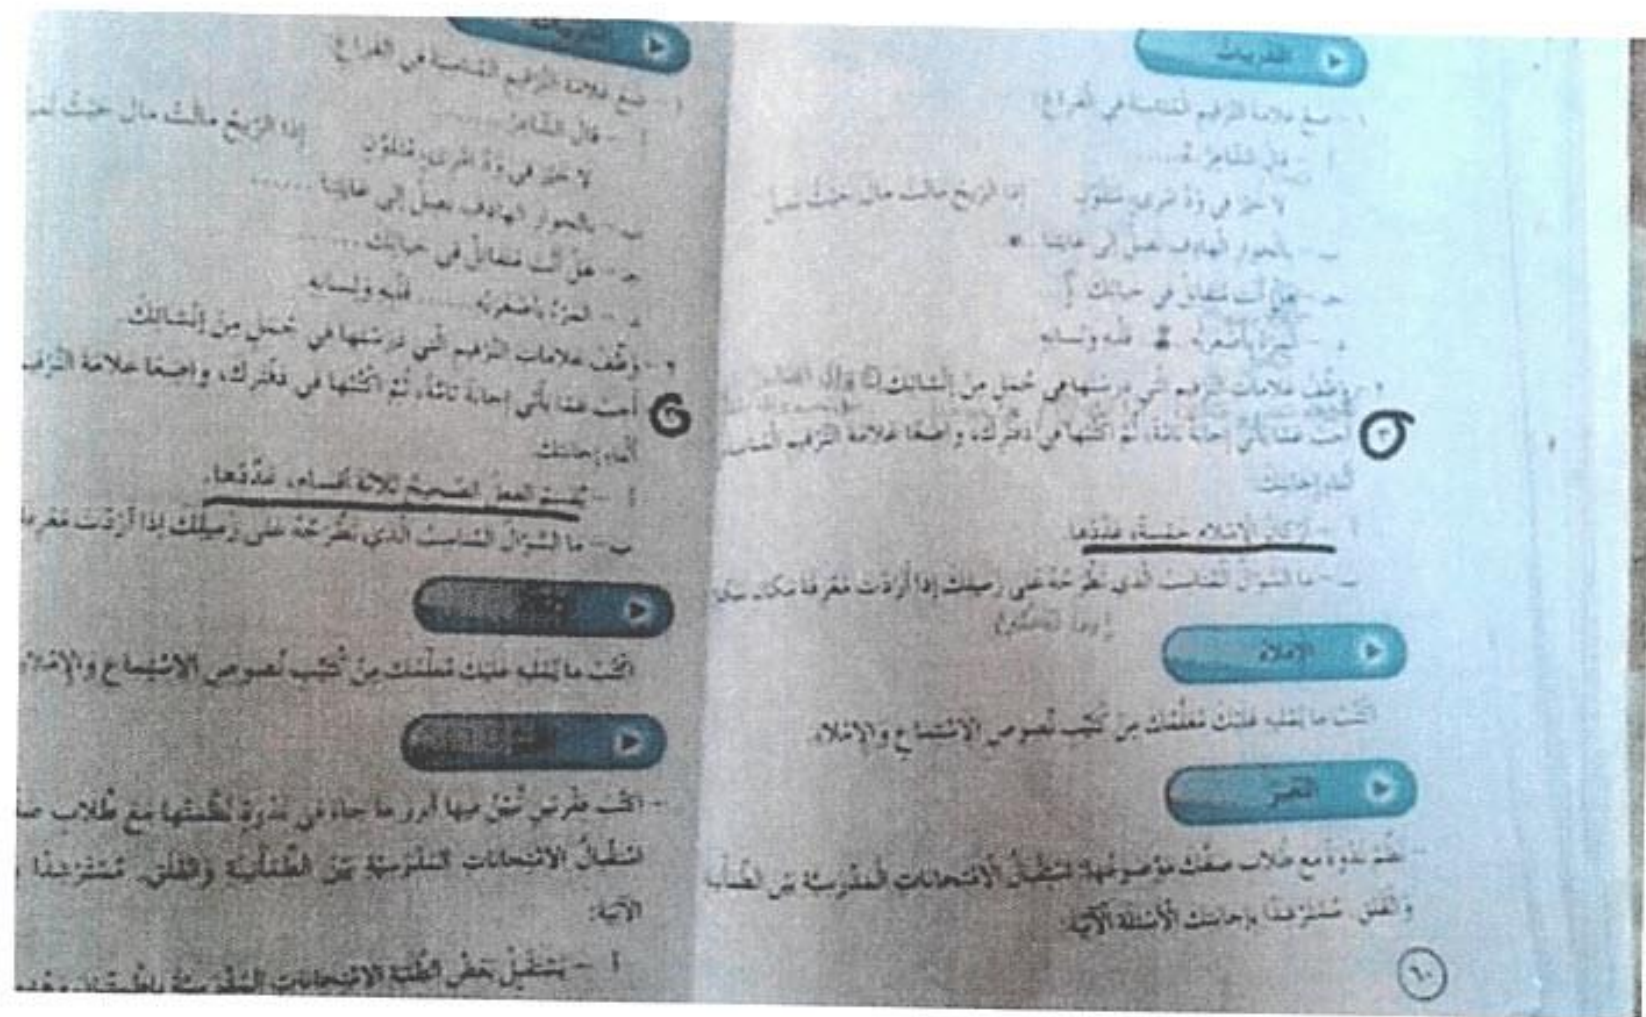 التدريبات
١- ضع علامة الترقيم المناسبة في الفراغ:
أ - قال الشاعر:
لا خير في ودّ امرئ متلوّن إذا الريح مالت مال حيث تميل
ب- بالحوار الهادف نصل إلى غايتنا
جـ- هل أنت متفائل في حياتك ؟
د - المرء بأصغريه : قلبه ولسانه
٢- وظّف علامات الترقيم التي درستها في جمل من إنشائك
٣ أجب عمّا يأتي إجابة تامّة، ثمّ اكتبها في دفترك، واضعًا علامة الترقيم المناسبة
أثناء إجابتك:
أ - أركان الإسلام خمسة، عدّدها.
ب- ما السؤال المناسب الذي تطرحه على زميلك إذا أردت معرفة مكان
الإملاء
اكتب ما يمليه عليك معلّمك من كتيّب نصوص الاستماع والإملاء.
التعبير
- نظّم ندوة مع طلاب صفّك موضوعها: استقبال الامتحانات المدرسيّة بين الطمأنينة
والقلق، مسترشدًا بإجابتك الأسئلة الآتية:
٦٠
١- ضع علامة الترقيم المناسبة في الفراغ:
أ - قال الشاعر.......
لا خير في ودّ امرئ متلوّن إذا الريح مالت مال حيث
ب- بالحوار الهادف نصل إلى غايتنا ......
جـ- هل أنت متفائل في حياتك ......
د - المرء بأصغريه ...... قلبه ولسانه
٢- وظّف علامات الترقيم التي درستها في جمل من إنشائك.
٣ أجب عمّا يأتي إجابة تامّة، ثمّ اكتبها في دفترك، واضعًا علامة
أثناء إجابتك:
أ - يُقسم الفعل الصحيح ثلاثة أقسام، عدّدها.
ب- ما السؤال المناسب الذي تطرحه على زميلك إذا أردت
اكتب ما يمليه عليك معلّمك من كتيّب نصوص الاستماع والإملاء
- اكتب فقرتين تبيّن فيها أبرز ما جاء في ندوة نظّمتها مع طلاب
استقبال الامتحانات المدرسيّة بين الطمأنينة والقلق، مسترشدًا
الآتية:
أ - يستقبل بعض الطلبة الامتحانات المدرسيّة